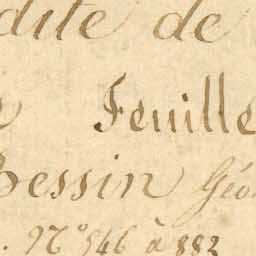 dite de
Feuille
Bessin Géo
. N° 546 à 883